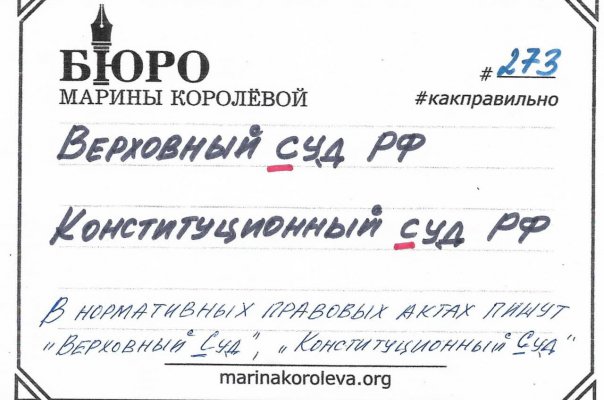 БЮРО
МАРИНЫ КОРОЛЁВОЙ
# 273
#какправильно
Верховный суд РФ
Конституционный суд РФ
В нормативных правовых актах пишут
„Верховный Суд", „Конституционный Суд"
marinakoroleva.org